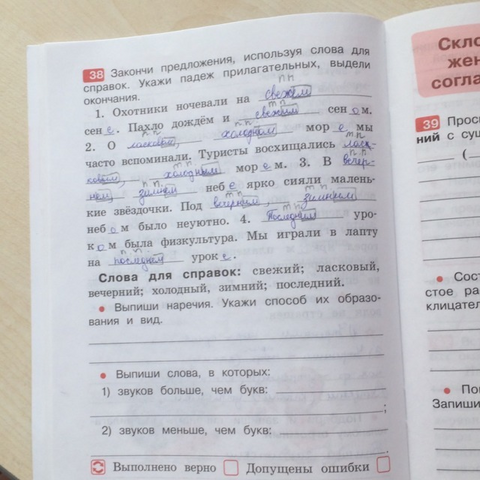 38 Закончи предложения, используя слова для
справок. Укажи падеж прилагательных, выдели
окончания.
п.п.
1. Охотники ночевали на свежем
т.п.
сен е. Пахло дождём и свежым сен о м.
п.п. п.п.
2. О ласковом, холодном мор е мы
т.п.
часто вспоминали. Туристы восхищались ласк-
т.п.
овым, холодным мор е м. 3. В вечер-
п.п. п.п.
нем зимнем неб е ярко сияли малень-
т.п. т.п.
кие звёздочки. Под вечерним, зимним
т.п.
неб о м было неуютно. 4. Последним уро-
к о м была физкультура. Мы играли в лапту
п.п.
на последнем урок е.
Слова для справок: свежий; ласковый,
вечерний; холодный, зимний; последний.
• Выпиши наречия. Укажи способ их образо-
вания и вид.
• Выпиши слова, в которых:
1) звуков больше, чем букв:
;
2) звуков меньше, чем букв:
.
Выполнено верно Допущены ошибки
Скло
жен
согла
39 Прос
ний с су
(
• Сост
стое ра
клицател
• По
Запиши